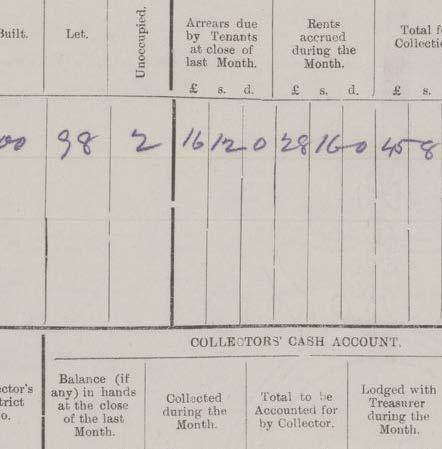 Built. Let. Unoccupied. Arrears due by Tenants at close of last Month. Rents accrued during the Month. Total f Collectio
£ s. d. £ s. d. £ s.
00 98 2 16 12 0 28 16 0 45 8
COLLECTORS' CASH ACCOUNT.
ector's trict o. Balance (if any) in hands at the close of the last Month. Collected during the Month. Total to be Accounted for by Collector. Lodged with Treasurer during the Month.